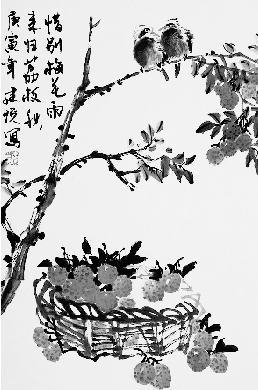 惜别梅花雨
来归荔枝秋
庚寅年建寫